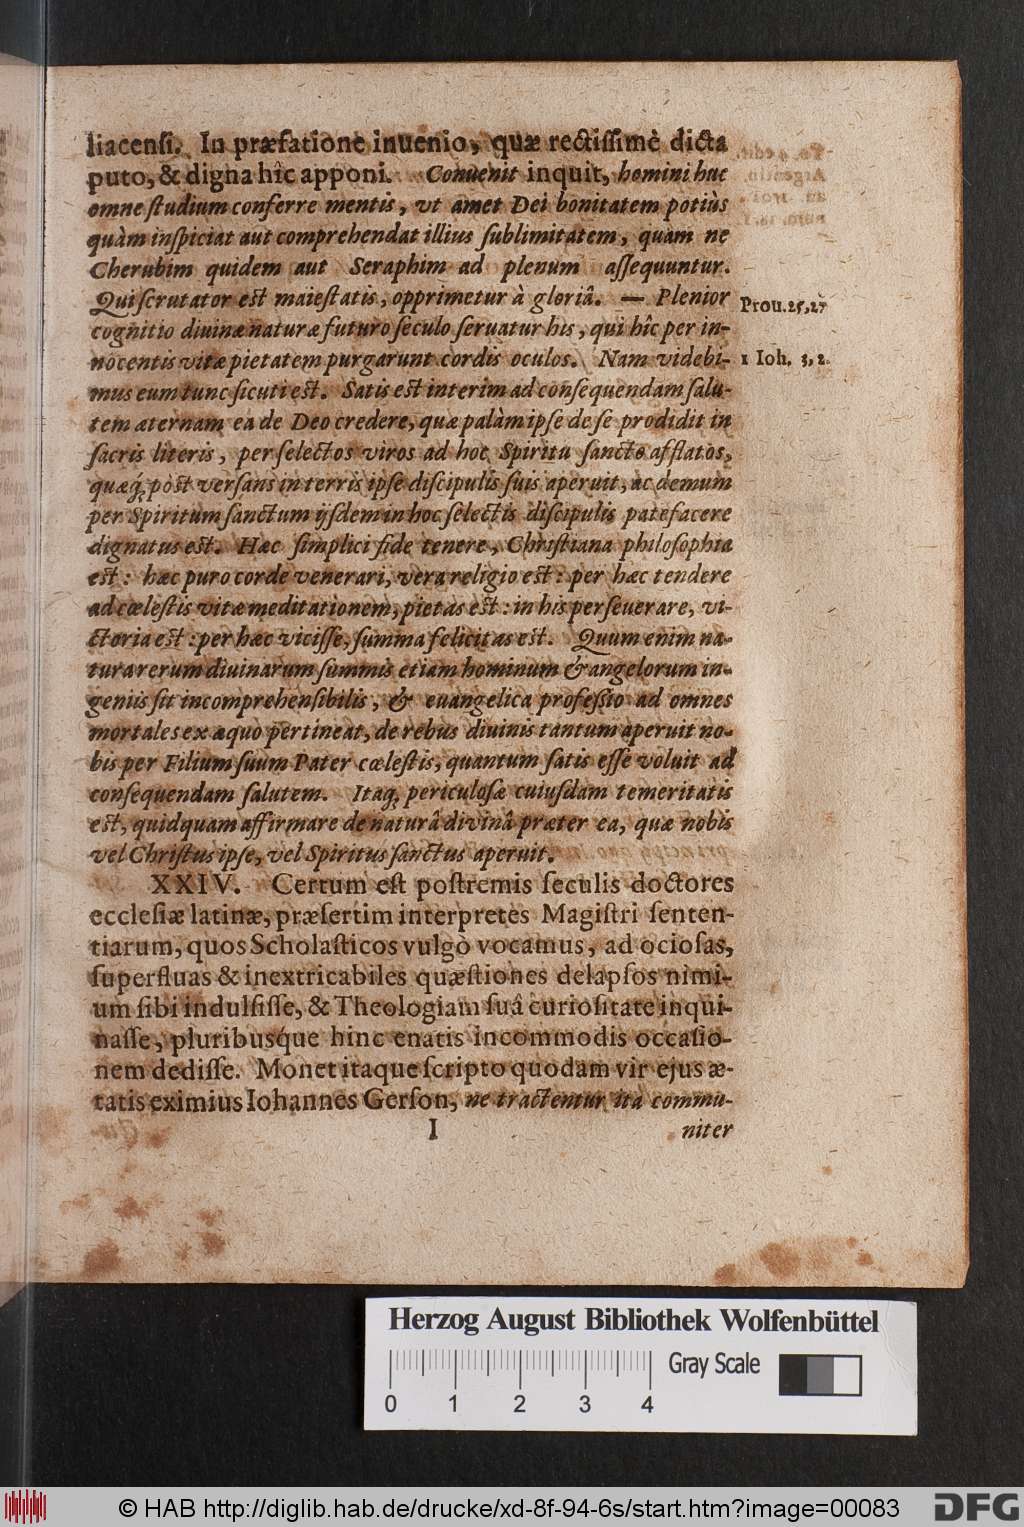 liacenſi. In præfatione inuenio, quæ rectiſſimè dicta
puto, & digna hîc apponi. Conuenit inquit, homini huc
omne ſtudium conferre mentis, vt amet Dei bonitatem potiùs
quàm inſpiciat aut comprehendat illius ſublimitatem, quam ne
Cherubim quidem aut Seraphim ad plenum aſſequuntur.
Qui ſcrutator est maieſtatis, opprimetur à gloriâ. — Plenior
Prou. 25, 27
cognitio diuinæ naturæ futuro ſeculo ſeruatur his, qui hîc per in-
nocentis vitæ pietatem purgarunt cordis oculos. Nam videbi-
1 Ioh. 3, 2.
mus eum tunc ſicuti est. Satis est interim ad conſequendam ſalu-
tem æternam ea de Deo credere, quæ palàm ipſe de ſe prodidit in
ſacris literis, per ſelectos viros ad hoc Spiritu ſancto afflatos,
quæq́; pòst verſans in terris ipſe diſcipulis ſuis aperuit, ac demum
per Spiritum ſanctum ijſdem in hoc ſelectis diſcipulis patefacere
dignatus est. Hæc ſimplici fide tenere, Chriſtiana philoſophia
est: hæc puro corde venerari, vera religio est: per hæc tendere
ad cœleſtis vitæ meditationem, pietas est: in his perſeuerare, vi-
ctoria est: per hæc viciſſe, ſumma felicitas est. Quum enim na-
tura rerum diuinarum ſummis etiam hominum & angelorum in-
geniis ſit incomprehenſibilis, & euangelica profeſſio ad omnes
mortales ex æquò pertineat, de rebus diuinis tantum aperuit no-
bis per Filium ſuum Pater cœleſtis, quantum ſatis eſſe voluit ad
conſequendam ſalutem. Itaq; periculoſæ cuiuſdam temeritatis
est, quidquam affirmare de naturâ divinâ præter ea, quæ nobis
vel Chriſtus ipſe, vel Spiritus ſanctus aperuit.
XXIV. Certum eſt poſtremis ſeculis doctores
eccleſiæ latinæ, præſertim interpretes Magiſtri ſenten-
tiarum, quos Scholaſticos vulgò vocamus, ad ocioſas,
ſuperfluas & inextricabiles quæſtiones delapſos nimi-
um ſibi indulſiſſe, & Theologiam ſuâ curioſitate inqui-
naſſe, pluribusq́ue hinc enatis incommodis occaſio-
nem dediſſe. Monet itaque ſcripto quodam vir ejus æ-
tatis eximius Iohannes Gerſon, ne tractentur ita commu-
I niter
Herzog August Bibliothek Wolfenbüttel
Gray Scale
0 1 2 3 4
© HAB http://diglib.hab.de/drucke/xd-8f-94-6s/start.htm?image=00083
DFG